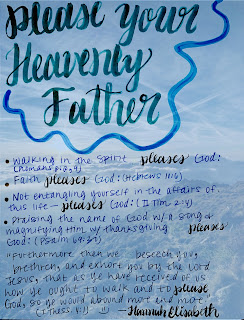 please Your
Heavenly
Father
• Walking in the Spirit pleases God:
(Romans 8:8,9)
• Faith pleases God: (Hebrews 11:6)
• Not entangling yourself in the affairs of
this life — pleases God: (II Tim. 2:4)
• Praising the name of God w/ a song &
magnifying Him w/ thanksgiving pleases
God: (Psalm 69:31)
"Furthermore then we beseech you,
brethren, and exhort you by the Lord
Jesus, that as ye have received of us
how ye ought to walk and to please
God, so ye would abound more and more."
(I Thess. 4:1) — Hannah Elisabeth